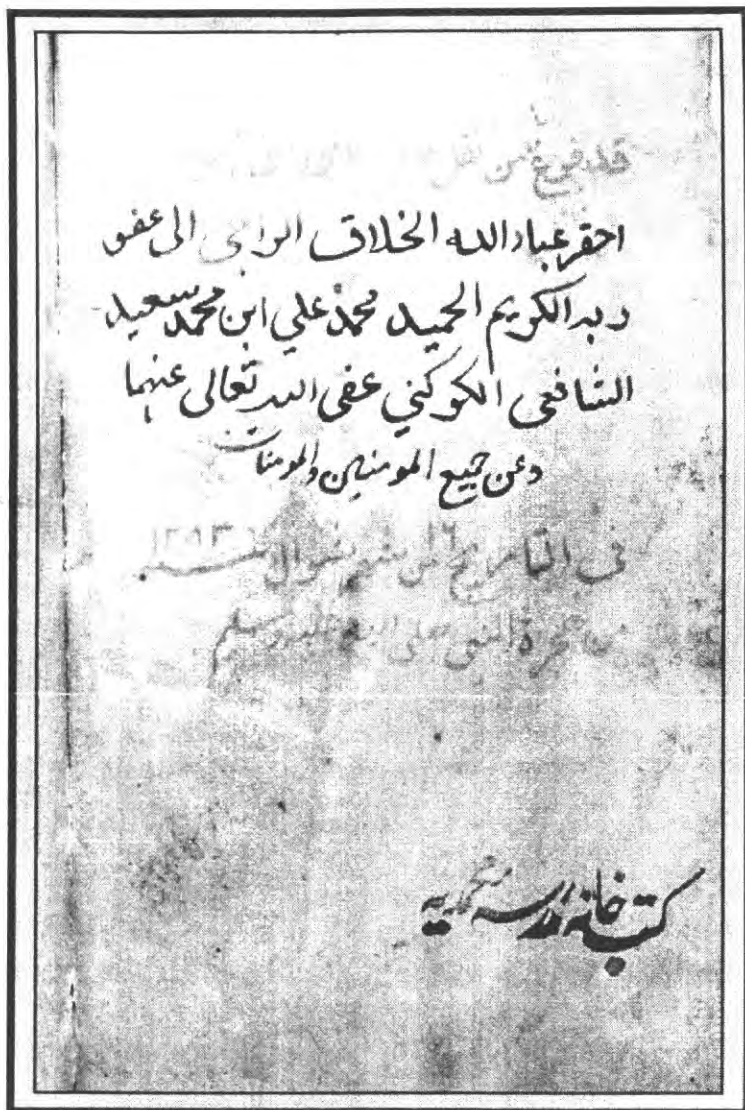 قد فرغ من نقل
احقر عباد الله الخلاق الراجى الى عفو
ربه الكريم الحميد محمد علي ابن محمد سعيد
الشافعى الكوكني عفى الله تعالى عنهما
وعن جميع المومنين والمومنات
فى التاريخ ١٦ من شهر شوال سنه
من هجرة النبى صلى الله عليه وسلم
كتب خانه مدرسه محمديه